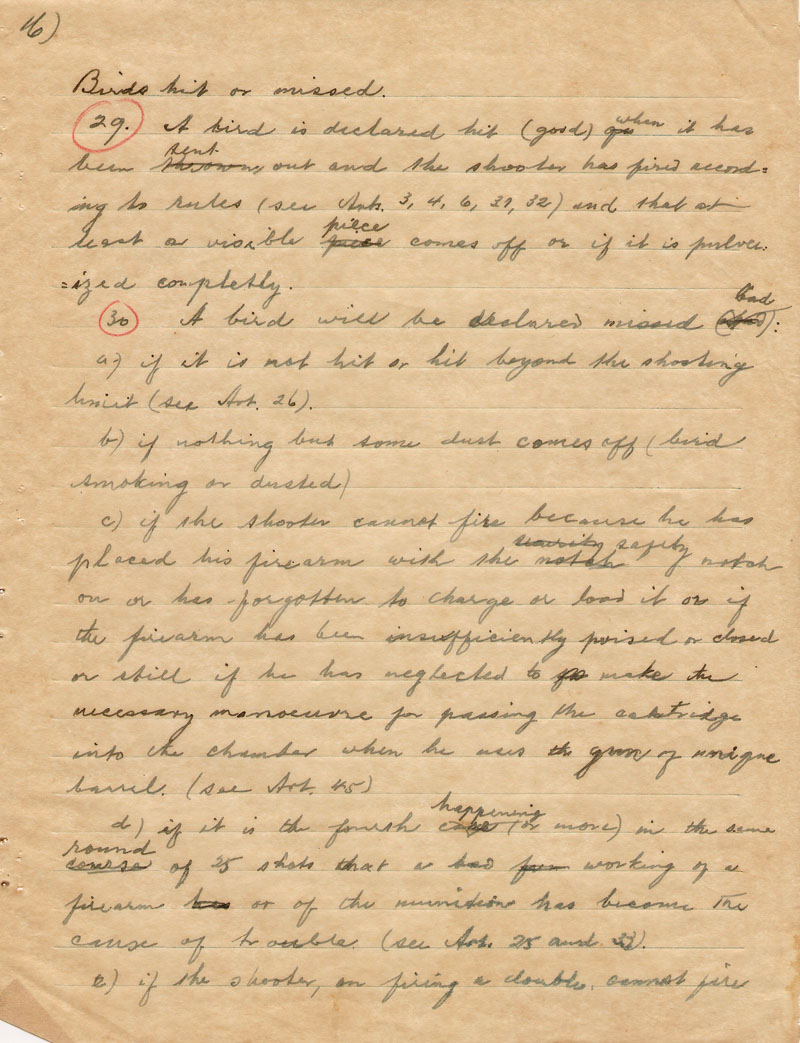 16)
Birds hit or missed.
29. A bird is declared hit (good) when it has
been thrown sent out and the shooter has fired accord=
ing to rules (see Arts. 3, 4, 6, 31, 32) and that at
least a visible piece piece comes off or if it is pulver=
=ized completly.
30 A bird will be declared missed (bad):
a) if it is not hit or hit beyond the shooting
limit (see Art. 26).
b) if nothing but some dust comes off (bird
smoking or dusted)
c) if the shooter cannot fire because he has
placed his firearm with the security notch safety notch
on or has forgotten to charge or load it or if
the firearm has been insufficiently poised or closed
or still if he has neglected to make the
necessary manoeuvre for passing the cartridge
into the chamber when he uses the gun of unique
barril. (see Art. 45)
d) if it is the fourth case happening (or more) in the same
course round of 25 shots that a bad fun working of a
firearm has or of the munition has become the
cause of trouble. (see Art. 25 and 33).
e) if the shooter, on firing a double, cannot fire